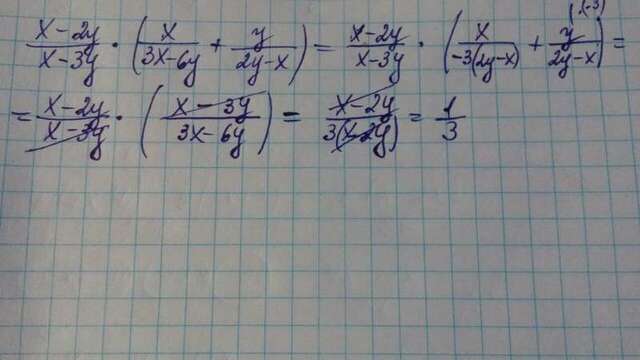 (x-2y)/(x-3y) · (x/(3x-6y) + y/(2y-x)) = (x-2y)/(x-3y) · (x/(-3(2y-x)) + y^{(·(-3)}/(2y-x)) =
= (x-2y)/(x-3y) · ((x-3y)/(3x-6y)) = (x-2y)/(3(x-2y)) = 1/3